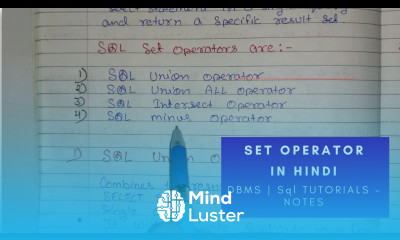 select statement in a single
and return a specific result set.
SQL Set Operators are:-
1) SQL Union operator
2) SQL Union ALL operator
3) SQL Intersect Operator
4) SQL minus operator
1) SQL Un
Combines
SELECT
SET OPERATOR
IN HINDI
DBMS | Sql TUTORIALS -
NOTES
Mind
Luster